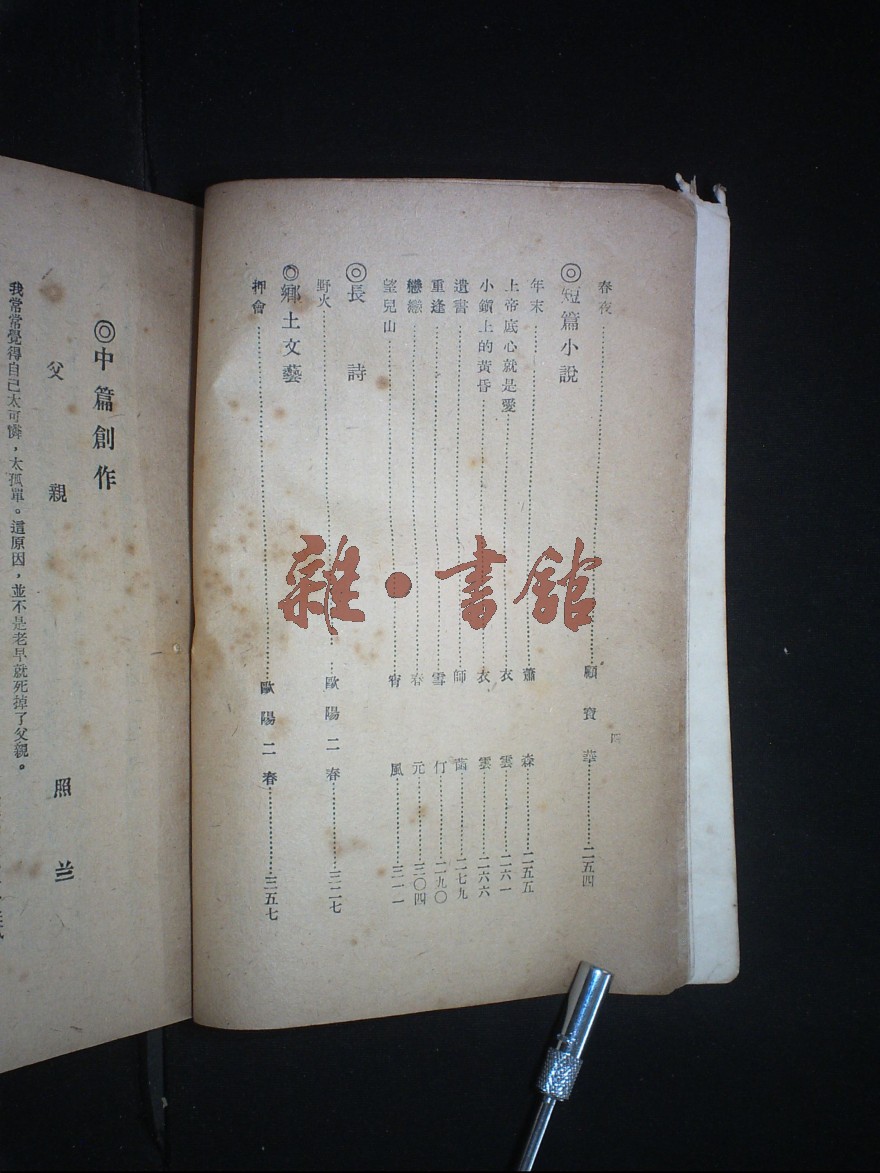 春夜 顧寶華 二五四
◎短篇小說
年末 蕭森 二五五
上帝底心就是愛 衣雲 二六一
小鎮上的黃昏 衣雲 二六六
遺書 師 二七九
重逢 雪仃 二九〇
戀戀 春元 三〇四
望兒山 宵風 三一一
◎長詩
野火 歐陽二春 三二七
◎鄉土文藝
押會 歐陽二春 三五七
四
雜·書館
◎中篇創作
父親 照兰
我常常覺得自己太可憐,太孤單。這原因,並不是老早就死掉了父親。